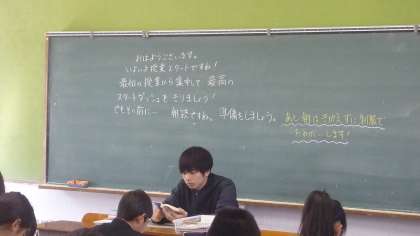 おはようございます。
いよいよ授業スタートですね!
最初の授業から集中して 最高の
スタートダッシュをきりましょう!
でもその前に… 朝読ですね。準備をしましょう。
あし 制服で
します!